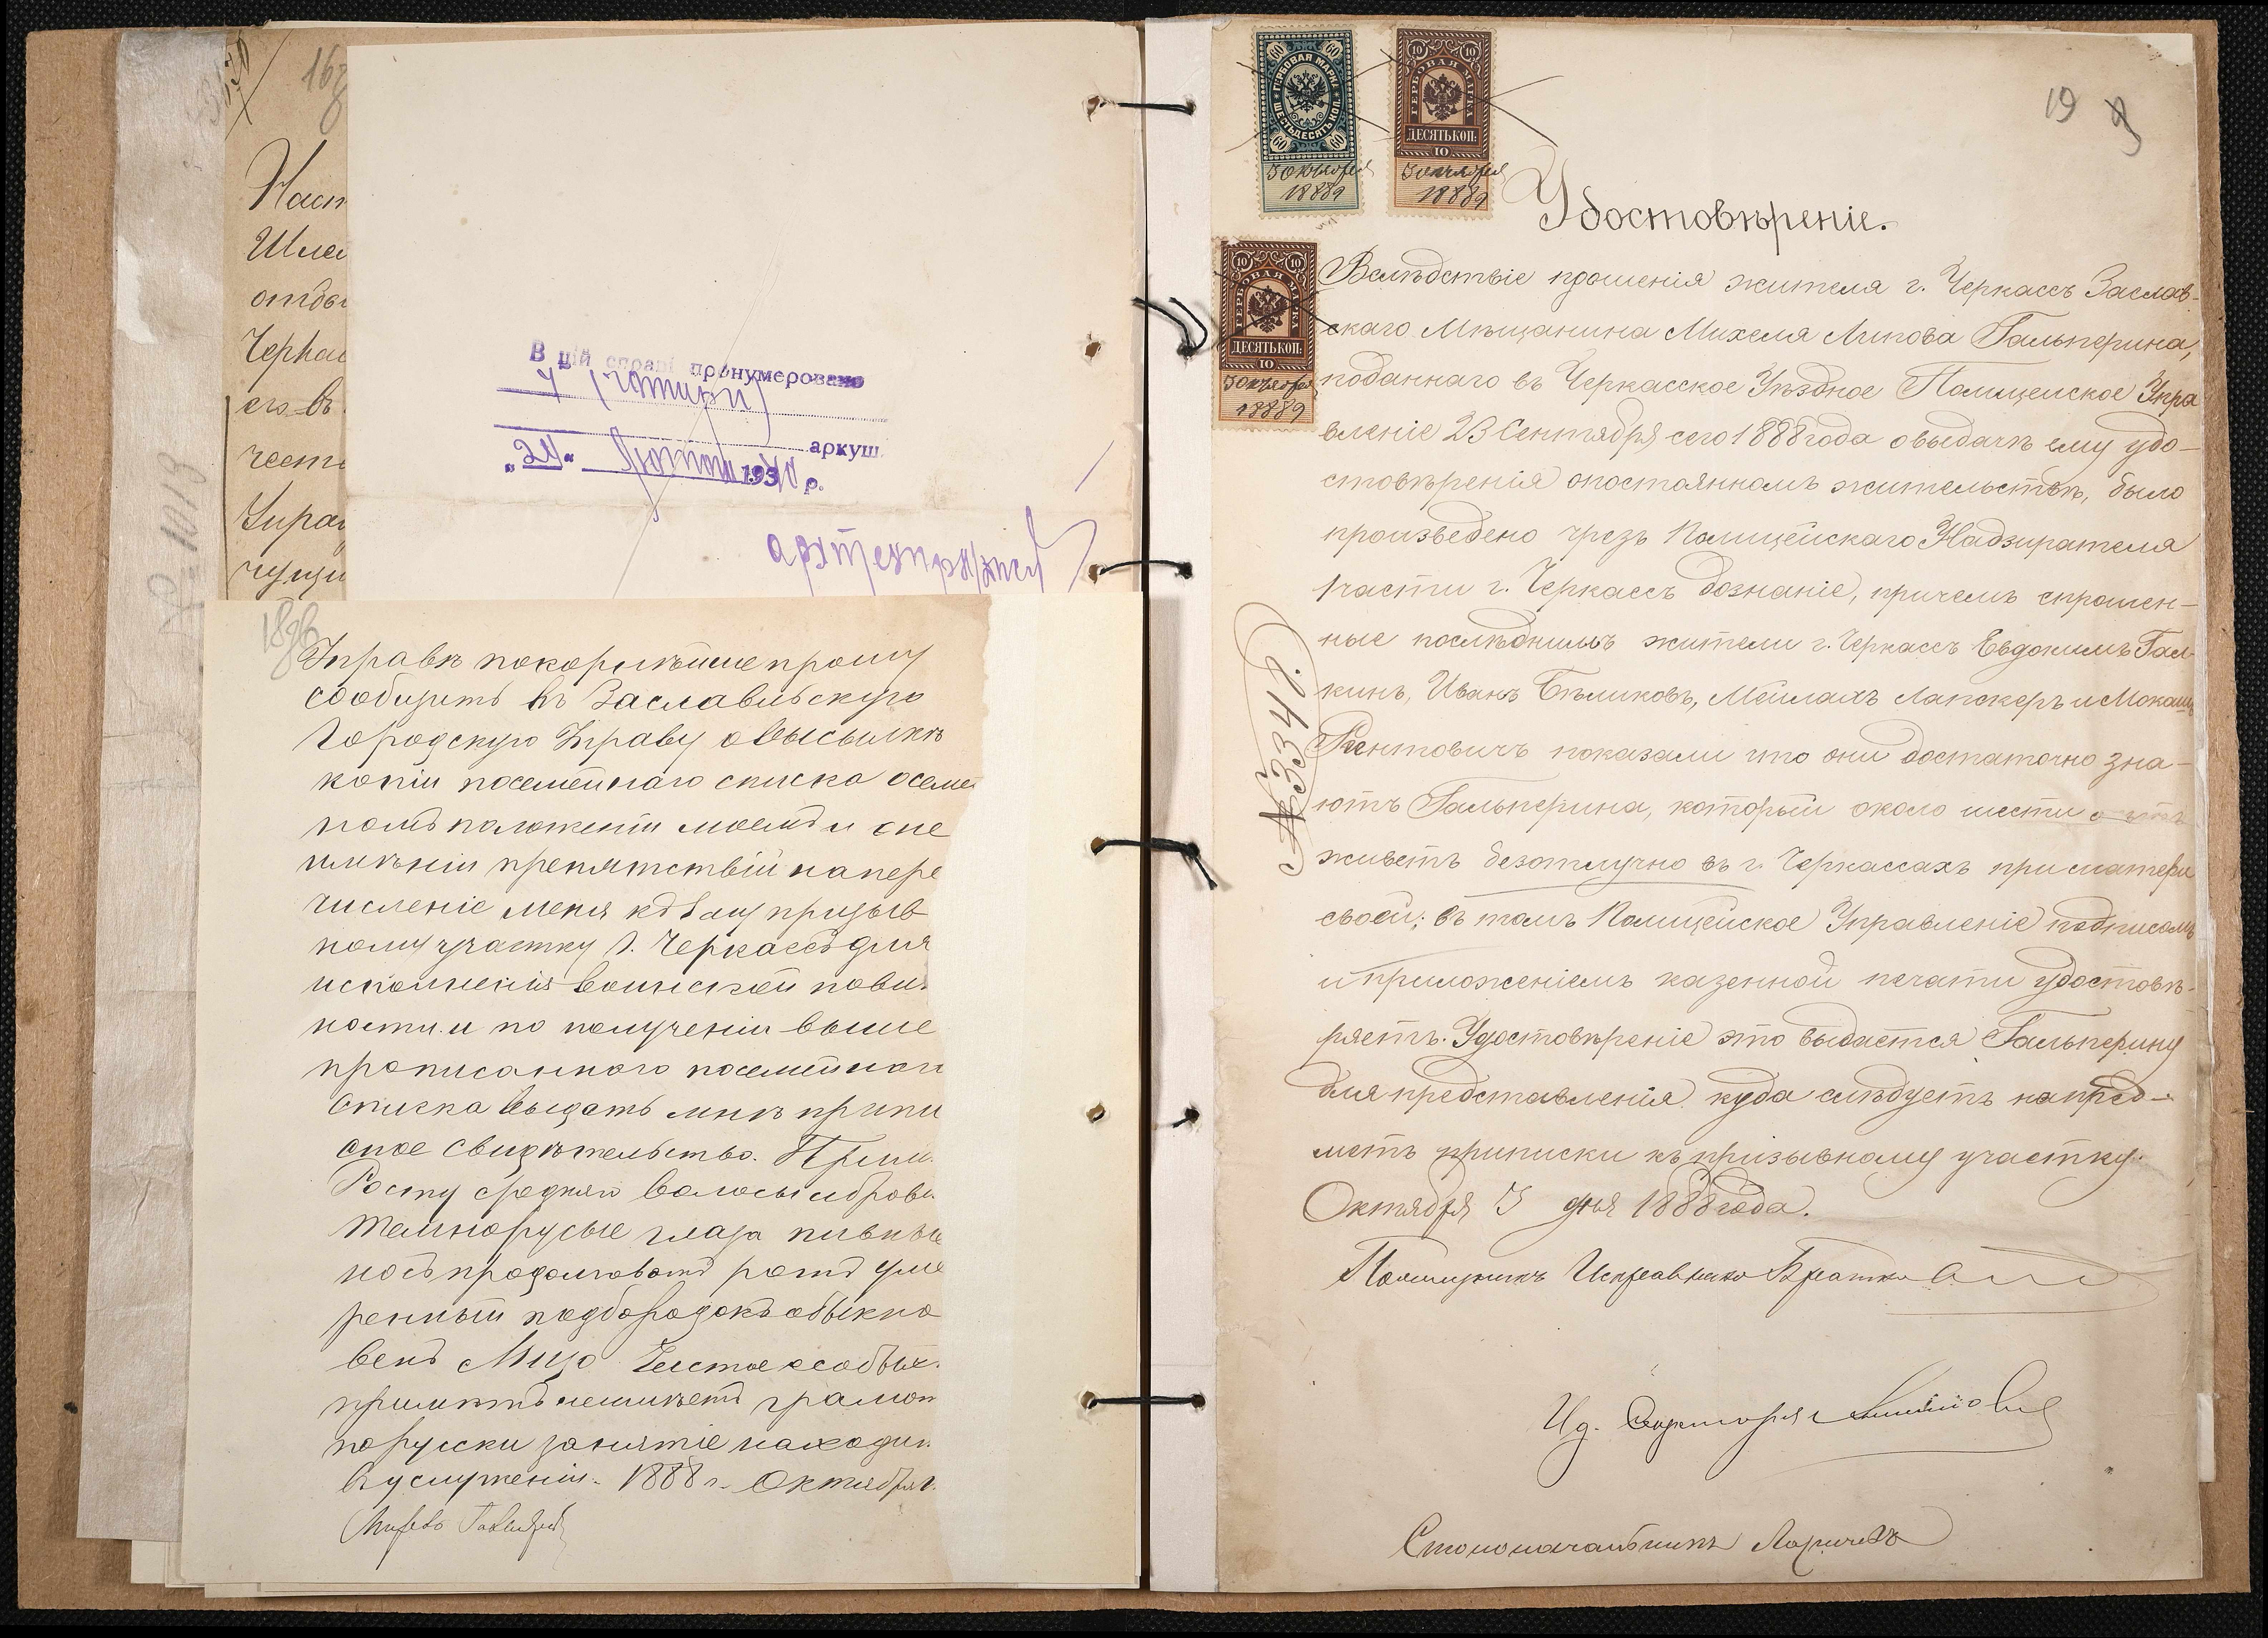 16
Наст
Шлей
отды
Черкас
его въ
честь
Управ
В цій справі пронумеровано
4 (чотири)
аркуш.
"24" лютий 1940 р.
18
Управѣ покорнѣйше прошу
сообщить въ Заславльскую
Городскую Управу о высылкѣ
копіи посемейнаго списка о семей
номъ положеніи моемъ и о не
имѣніи препятствій на пере
численіе меня къ 1му призыв
ному участку г. Черкассъ для
исполненія воинской повин
ности. и по полученіи выше
прописанного посемейнаго
списка выдать мнѣ припи
сное свидѣтельство. Прим.
Росту средняго волосы и брови
темнорусые глаза
носъ продолговатъ ротъ уме
ренный подбородокъ обыкно
венъ Лицо Чистое особых.
примѣтъ неимѣетъ грамот
порусски занятіе находит.
въ услуженіи. 1888 г. Октября
19
ГЕРБОВАЯ МАРКА
ШЕСТЬДЕСЯТЪ КОП.
60
3 октября
1888
ГЕРБОВАЯ МАРКА
ДЕСЯТЬ КОП:
10
3 октября
1888
ГЕРБОВАЯ МАРКА
ДЕСЯТЬ КОП:
10
3 октября
1888
Удостовѣреніе.
Вслѣдствіе прошенія жителя г. Черкассъ Заслав-
скаго Мѣщанина Михеля Липова Гальперина,
поданнаго въ Черкасское Уѣздное Полицейское Упра
вленіе 23 Сентября сего 1888 года о выдачѣ ему удо-
стовѣренія о постоянномъ жительствѣ, было
произведено чрезъ Полицейскаго Надзирателя
1 части г. Черкассъ дознаніе, причемъ спрошен-
ные послѣднимъ жители г. Черкассъ Евдокимъ Гал-
кинъ, Иванъ Бѣликовъ, Мейлахъ Лапскеръ и
показали что они достаточно зна-
ютъ Гальперина, который около шести лѣтъ
живетъ безотлучно въ г. Черкассахъ при матери
своей; въ томъ Полицейское Управленіе подписомъ
и приложеніемъ казенной печати удостовѣ-
ряетъ. Удостовѣреніе это выдается Гальперину
для представленія куда слѣдуетъ на пред-
метъ приписки къ призывному участку.
Октября 3 дня 1888 года.
№ 3341.
Помощникъ Исправника
Ид. Секретаря
Столоначальникъ